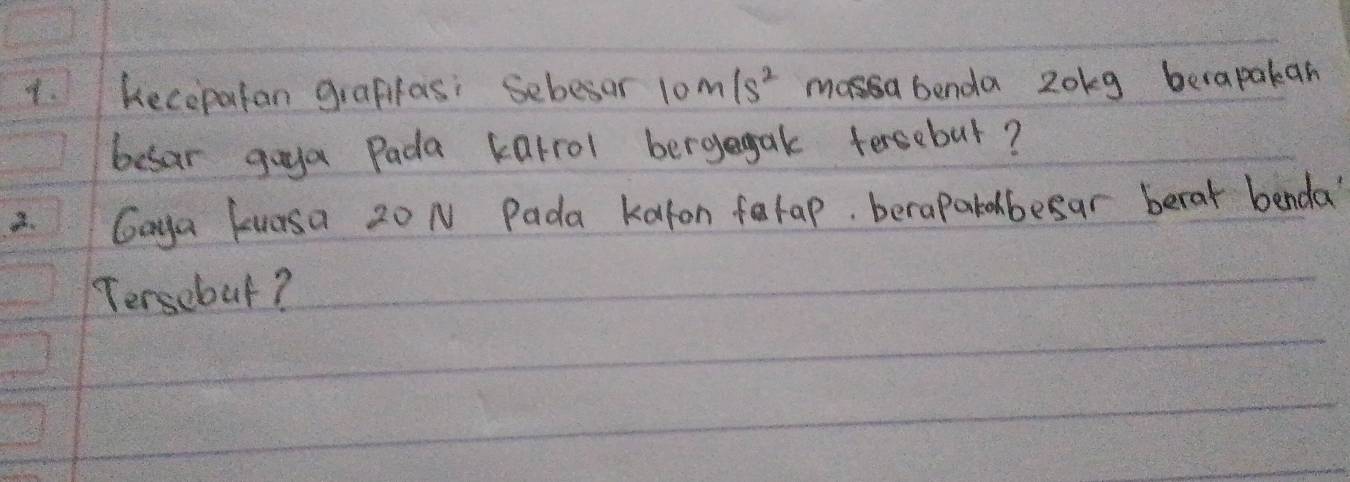 1. Kecepatan grafitasi sebesar 10 m/s² massa benda 20kg berapakah
besar gaya Pada katrol bergegak tersebut?
2. Gaya kuasa 20 N Pada katon tatap. berapakah besar berat benda
Tersebut?